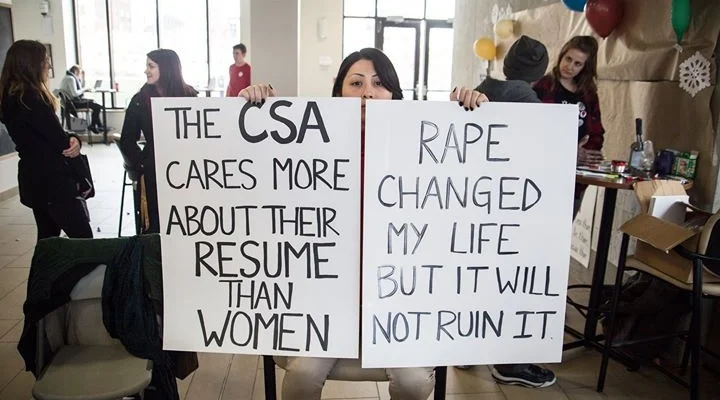 THE CSA
CARES MORE
ABOUT THEIR
RESUME
THAN
WOMEN
RAPE
CHANGED
MY LIFE
BUT IT WILL
NOT RUIN IT.